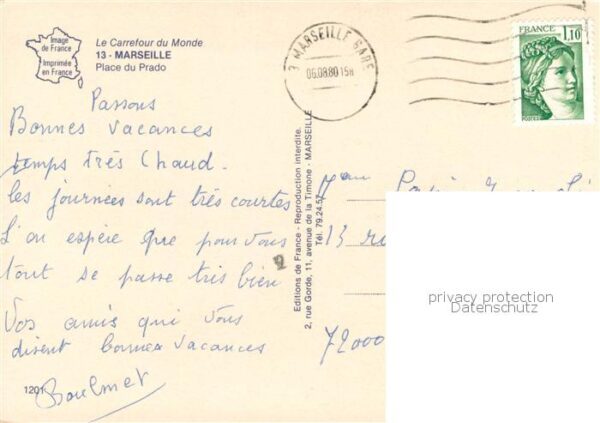 Image
de France
Imprimée
en France
Le Carrefour du Monde
13 - MARSEILLE
Place du Prado
3 MARSEILLE GARE
06.0880 15H
FRANCE
1,10
POSTES
Passons
Bonnes vacances
temps très Chaud.
les journées sont très courtes
L'on espère que pour vous
tout se passe très bien
Vos amis qui vous
disent bonnes vacances
1201
Editions de France - Reproduction interdite.
2, rue Gorde, 11, avenue de la Timone - MARSEILLE
Tél. 79.24.57
13 ru
72000
privacy protection
Datenschutz